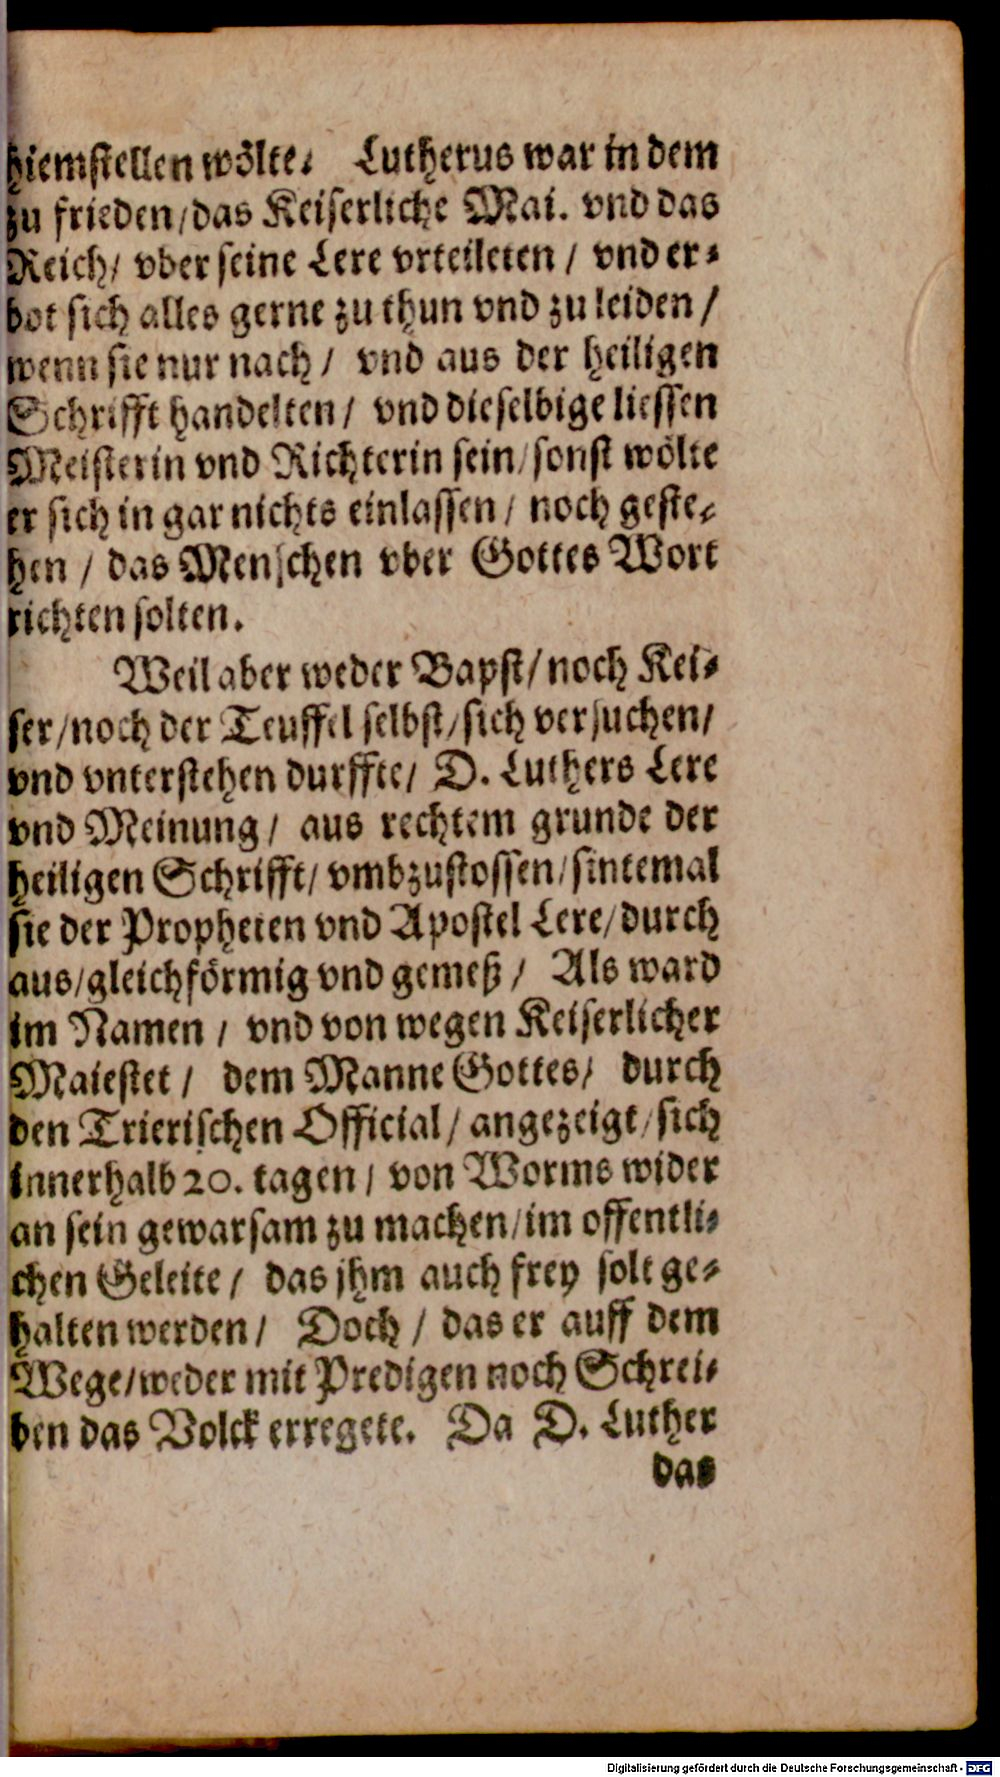 hiemstellen wölte. Lutherus war in dem
zu frieden/das Keiserliche Mai. vnd das
Reich/ vber seine Lere vrteileten / vnd er-
bot sich alles gerne zu thun vnd zu leiden /
wenn sie nur nach / vnd aus der heiligen
Schrifft handelten / vnd dieselbige liessen
Meisterin vnd Richterin sein/sonst wölte
er sich in gar nichts einlassen / noch geste-
hen / das Menschen vber Gottes Wort
richten solten.
Weil aber weder Bapst/noch Kei-
ser/noch der Teuffel selbst/sich versuchen/
vnd vnterstehen durffte/ D. Luthers Lere
vnd Meinung / aus rechtem grunde der
heiligen Schrifft/ vmbzustossen/sintemal
sie der Propheten vnd Apostel Lere/durch
aus/gleichförmig vnd gemeß / Als ward
im Namen / vnd von wegen Keiserlicher
Maiestet / dem Manne Gottes/ durch
den Trierischen Official / angezeigt/sich
innerhalb 20. tagen / von Worms wider
an sein gewarsam zu machen/im offentli-
chen Geleite / das jhm auch frey solt ge-
halten werden / Doch / das er auff dem
Wege/weder mit Predigen noch Schrei-
ben das Volck erregete. Da D. Luther
das
Digitalisierung gefördert durch die Deutsche Forschungsgemeinschaft - DFG